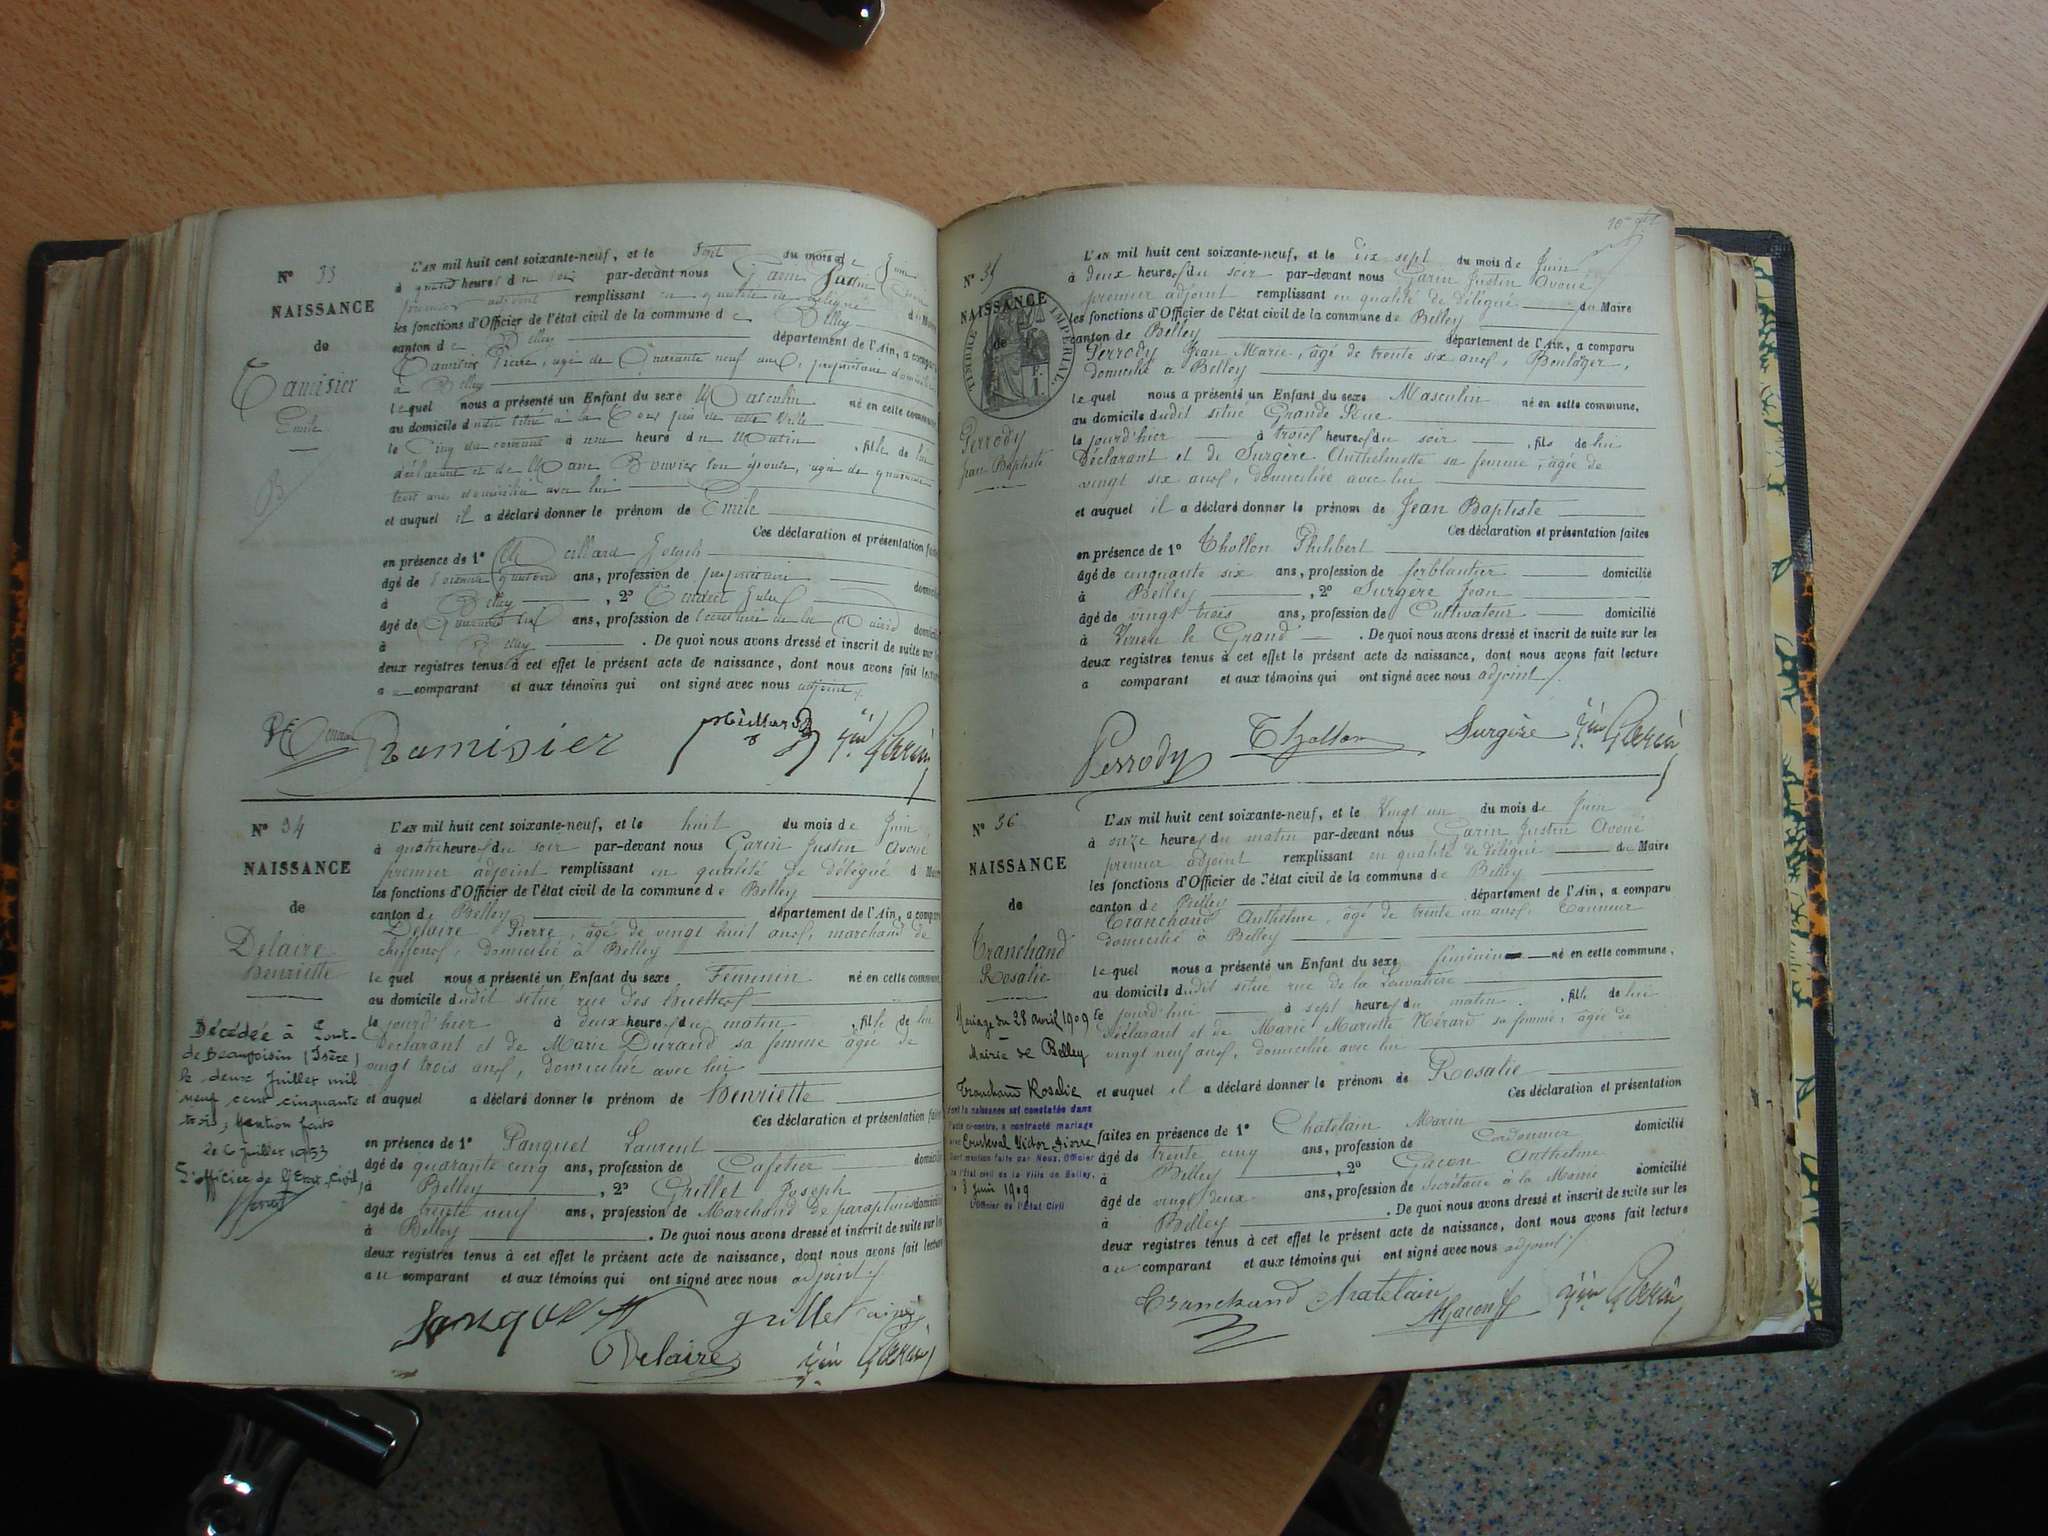 N° 33
NAISSANCE
de
Tamisier
Emile
L'AN mil huit cent soixante-neuf, et le Sept du mois de Juin
à quatre heures du soir par-devant nous Garin Justin Avoué
premier adjoint remplissant en qualité de délégué du Maire
les fonctions d'Officier de l'état civil de la commune de Belley
canton de Belley département de l'Ain, a comparu
Tamisier Pierre, agé de Quarante neuf ans, propriétaire domicilié
à Belley
lequel nous a présenté un Enfant du sexe Masculin né en cette commune,
au domicile dudit situé à la
le Cinq du courant à une heure du Matin, fils de lui
déclarant et de Marie Bouvier son épouse, agée de quarante
trois ans, domiciliée avec lui
et auquel il a déclaré donner le prénom de Emile
Ces déclaration et présentation faites
en présence de 1° Millard Joseph
âgé de soixante quatorze ans, profession de propriétaire domicilié
à Belley, 2°
âgé de ans, profession de Secrétaire de la Mairie domicilié
à Belley. De quoi nous avons dressé et inscrit de suite sur les
deux registres tenus à cet effet le présent acte de naissance, dont nous avons fait lecture
au comparant et aux témoins qui ont signé avec nous adjoint
Tamisier Millard Jin Garin
N° 34
NAISSANCE
de
Delaire
Henriette
Décédée à Pont-
de Beauvoisin (Isère)
le deux Juillet mil
neuf cent cinquante
trois, Mention faite
le 6 Juillet 1953
L'officier de l'Etat-Civil,
L'AN mil huit cent soixante-neuf, et le huit du mois de Juin
à quatre heures du soir par-devant nous Garin Justin Avoué
premier adjoint remplissant en qualité de délégué du Maire
les fonctions d'Officier de l'état civil de la commune de Belley
canton de Belley département de l'Ain, a comparu
Delaire Pierre, âgé de vingt huit ans, marchand de
chiffons, domicilié à Belley
lequel nous a présenté un Enfant du sexe Féminin né en cette commune,
au domicile dudit situé rue des
le jourd'hier à deux heures du matin, fille de lui
Déclarant et de Marie Durand sa femme âgée de
vingt trois ans, domiciliée avec lui
et auquel a déclaré donner le prénom de Henriette
Ces déclaration et présentation faites
en présence de 1° Panquet Laurent
âgé de quarante cinq ans, profession de Cafetier domicilié
à Belley, 2° Grillet Joseph
âgé de trente neuf ans, profession de Marchand de parapluies domicilié
à Belley. De quoi nous avons dressé et inscrit de suite sur les
deux registres tenus à cet effet le présent acte de naissance, dont nous avons fait lecture
au comparant et aux témoins qui ont signé avec nous adjoint
Panquet grillet ainé
Delaire Jin Garin
N° 35
NAISSANCE
de
TIMBRE IMPÉRIAL
Perrody
Jean Baptiste
L'AN mil huit cent soixante-neuf, et le dix sept du mois de Juin
à deux heures du soir par-devant nous Garin Justin Avoué
premier adjoint remplissant en qualité de délégué du Maire
les fonctions d'Officier de l'état civil de la commune de Belley
canton de Belley département de l'Ain, a comparu
Perrody Jean Marie, âgé de trente six ans, Boulanger,
domicilié à Belley
lequel nous a présenté un Enfant du sexe Masculin né en cette commune,
au domicile dudit situé Grande Rue
le jourd'hier à trois heures du soir, fils de lui
Déclarant et de Surgère Anthelmette sa femme, âgée de
vingt six ans, domiciliée avec lui
et auquel il a déclaré donner le prénom de Jean Baptiste
Ces déclaration et présentation faites
en présence de 1° Thollon Philibert
âgé de cinquante six ans, profession de ferblantier domicilié
à Belley, 2° Surgère Jean
âgé de vingt trois ans, profession de Cultivateur domicilié
à Virieu le Grand. De quoi nous avons dressé et inscrit de suite sur les
deux registres tenus à cet effet le présent acte de naissance, dont nous avons fait lecture
a comparant et aux témoins qui ont signé avec nous adjoint
Perrody Thollon Surgère Jin Garin
N° 36
NAISSANCE
de
Tranchand
Rosalie
Mariage du 28 avril 1909
Mairie de Belley
Tranchand Rosalie
dont la naissance est constatée dans
l'acte ci-contre, a contracté mariage
avec Victor Pierre
Dont mention faite par Nous, Officier
de l'Etat civil de la Ville de Belley,
le 3 Juin 1909
L'Officier de l'Etat Civil
L'AN mil huit cent soixante-neuf, et le Vingt un du mois de Juin
à onze heures du matin par-devant nous Garin Justin Avoué
premier adjoint remplissant en qualité de délégué du Maire
les fonctions d'Officier de l'état civil de la commune de Belley
canton de Belley département de l'Ain, a comparu
Tranchand Anthelme, âgé de trente un ans, Tanneur
domicilié à Belley
lequel nous a présenté un Enfant du sexe féminin né en cette commune,
au domicile dudit situé rue de la
le jourd'hui à sept heures du matin, fille de lui
Déclarant et de Marie Mariette Nérard sa femme, âgée de
vingt neuf ans, domiciliée avec lui
et auquel il a déclaré donner le prénom de Rosalie
Ces déclaration et présentation
faites en présence de 1° Chatelain Marin
âgé de trente cinq ans, profession de Cordonnier domicilié
à Belley, 2° Gacon Anthelme
âgé de vingt deux ans, profession de Secrétaire à la Mairie domicilié
à Belley. De quoi nous avons dressé et inscrit de suite sur les
deux registres tenus à cet effet le présent acte de naissance, dont nous avons fait lecture
au comparant et aux témoins qui ont signé avec nous adjoint
Tranchand Chatelain AGacon Jin Garin